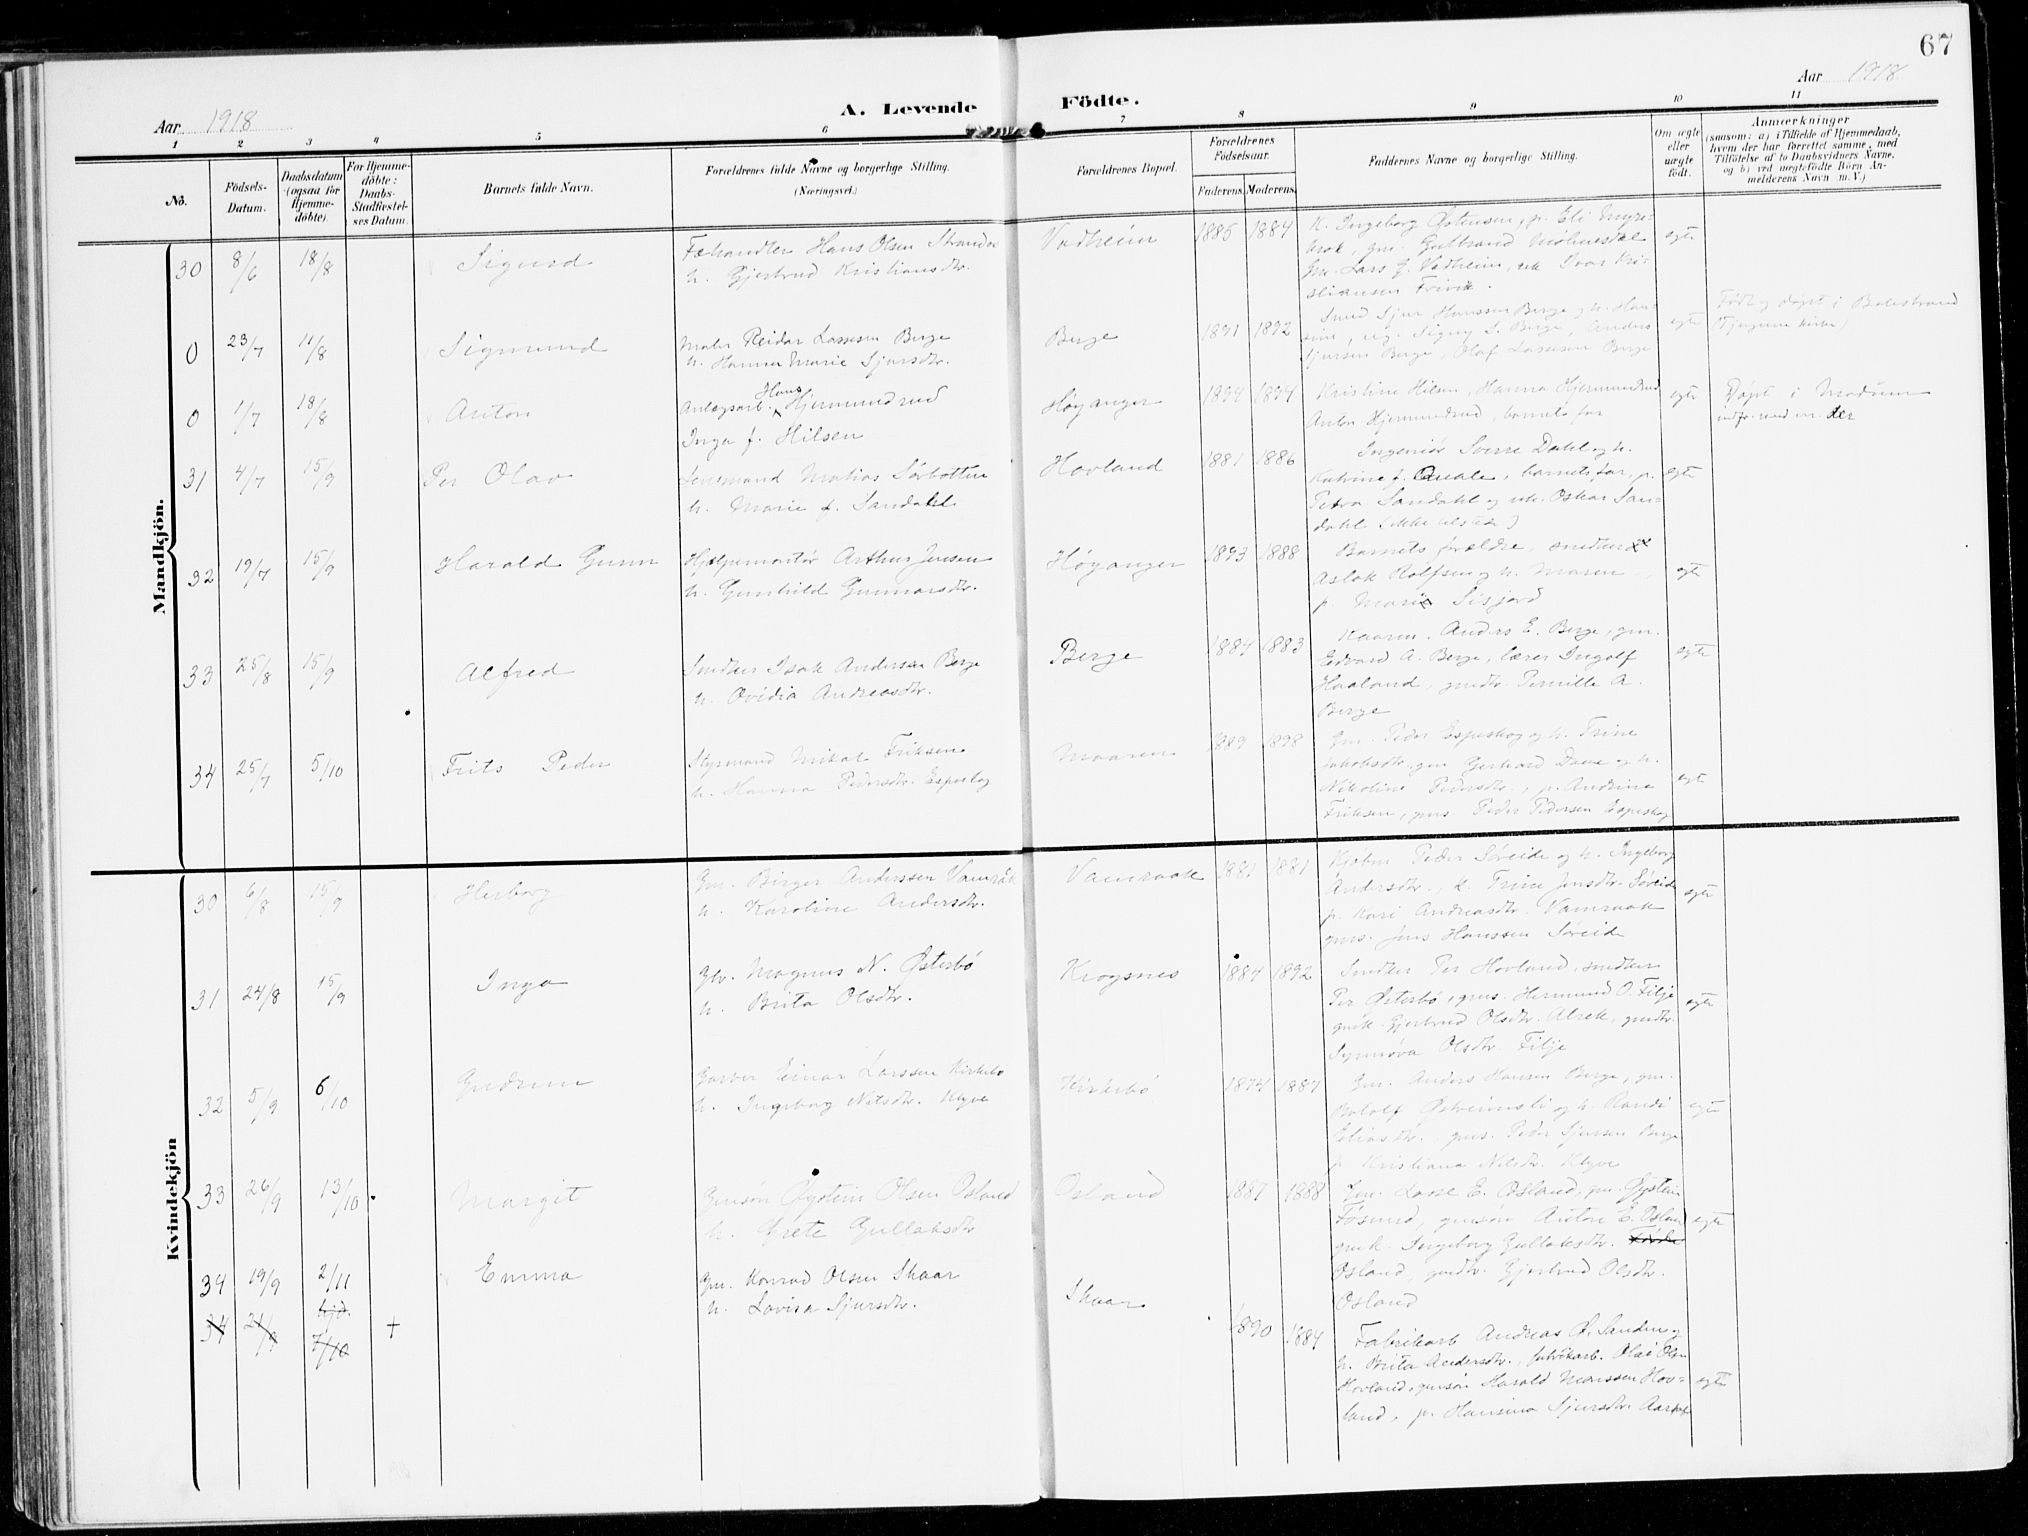 67
Aar 1918
A. Levende Födte.
Aar 1918
1 2 3 4 5 6 7 8 9 10 11
No.
Födsels-
Datum.
Daabsdatum
(ogsaa for
Hjemme-
döbte).
For Hjemme-
döbte:
Daabs-
Stadfæstel-
ses Datum.
Barnets fulde Navn.
Forældrenes fulde Navne og borgerlige Stilling.
(Næringsvei.)
Forældrenes Bopæl.
Forældrenes
Födselsaar.
Faderens. Moderens.
Faddernes Navne og borgerlige Stilling.
Om ægte
eller
uægte
födt.
Anmærkninger
(saasom: a) i Tilfælde af Hjemmedaab,
hvem der har forrettet samme, med
Tilföielse af to Daabsvidners Navne,
og b) ved uægtefödte Börn An-
melderens Navn m. V.)
Mandkjön.
30 8/6 18/8 Sigurd
Fehandler Hans Olsen Strandos
h. Gjertrud Kristiansdtr.
Vadheim 1885 1884
K. Ingeborg Østensen, p. Eli Myre-
gm. Lars J. Vadheim, uk Ivar Kri-
stiansen
egte
0 23/7 11/8 Sigmund
Maler Reidar Lassesen Berge
h. Hanna Marie Sjursdtr.
Berge 1891 1892
Smed Sjur Hanssen Berge og h. Han-
sine, ug. Signy S. Berge, Anders
Sjursen Berge, Olaf Lassesen Berge
egte
Født og døpt i Balestrand
(Tjugum kirke)
0 1/7 18/8 Anton
Hans
Anlegsarb. Hjermundrud
Inga f. Hilsen
Høyanger 1894 1894
Kristine Hilsen, Hanna Hjermundrud
Anton Hjermundrud, barnets far
egte
Døpt i Modum
31 4/7 15/9 Per Olav
Lensmand Matias Sørbotten
h. Marie f. Sandahl
Hovland 1881 1886
Ingeniør Sverre Dahl og h.
Katrine f. Quale, barnets far, p.
Petra Sandahl og uk. Oskar San-
dahl (ikke tilstede)
egte
32 19/7 15/9 Harald Gunn
Hjelpemontør Arthur Jensen
h. Gunhild Gunnarsdtr.
Høyanger 1893 1888
Barnets forældre, snedker
Aslak Rolfsen og h. Maren,
p. Marie Sisjord
egte
33 25/8 15/9 Alfred
Snedker Isak Anderssen Berge
h. Ovidia Andreasdtr.
Berge 1884 1883
Kaarm. Anders E. Berge, gm.
Edvard A. Berge, lærer Ingolf
Haaland, gmdtr. Pernille A.
Berge
egte
34 25/7 5/10 Frits Peder
Styrmand Mikal Friksen
h. Hanna Pedersdtr. Espeskog
Maaren 1889 1898
Gm. Peder Espeskog og h. Trine
Jakobsdtr, gm Gerhard Daae og h.
Nikoline Pedersdtr., p. Andrine
Friksen, gms. Peder Pedersen Espeskog
egte
Kvindekjön
30 6/8 15/9 Herborg
Gm. Birger Anderssen Vamråk
h. Karoline Andersdtr.
Vamraak 1881 1881
Kjøbm. Peder Søreide og h. Ingeborg
Andersdtr., k. Trine Jensdtr. Søreide
p. Kari Andreasdtr. Vamraak
gms. Jens Hanssen Søreide
egte
31 24/8 15/9 Inga
Gbr. Magnus N. Østerbö
h. Brita Olsdtr.
Krogsnes 1884 1892
Snedker Per Hovland, snedker
Per Østerbö, gms. Hermund O. Filje
gmk. Gjertrud Olsdtr. Alrek, gmdtr.
Synnøva Olsdtr. Filje
egte
32 5/9 6/10 Gudrun
Garver Einar Larssen Kirkebö
h. Ingeborg Nilsdtr. Klyve
Kirkebö 1874 1887
Gm. Anders Hansen Berge, gm.
Botolf Østreimsli og h. Randi
Eliasdtr. gms. Peder Sjursen Berge
p Kristiana Nilsdtr. Klyve
egte
33 26/9 13/10 Margit
Gmsøn Øystein Olsen Osland
h. Grete Gullaksdtr
Osland 1887 1888
Gm. Lasse E. Osland, gm. Øystein
gmsøn Anton E. Oslan
gmk. Ingeborg Gullaksdtr.
Osland, gmdtr. Gjertrud Olsdtr.
Osland
egte
34 19/9 2/11 Emma
Gm. Konrad Olsen Skaar
h. Lovisa Sjursdtr.
Skaar 1890 1884
34 21/9 hjd. 7/10 +
Fabrikarb Andreas O. Sanden og
h. Brita Andersdtr., fabrikarb. Olai Olsen
Hovland, gmsøn Harald Monssen Hov-
land, p. Hansina Sjursdtr.
egte